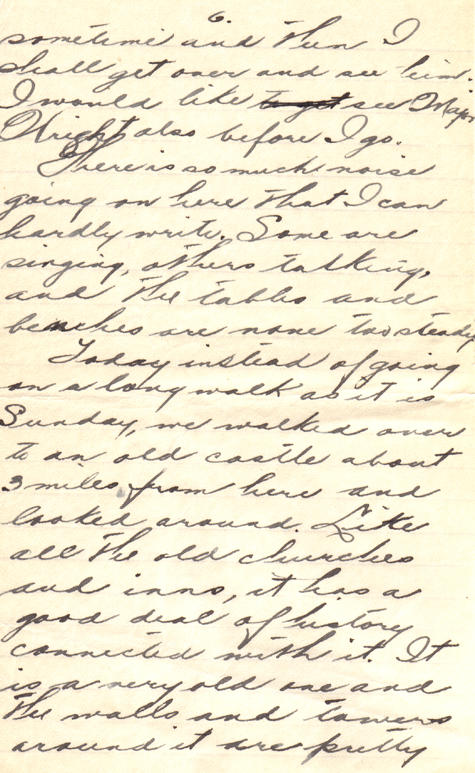 6.
sometime and then I
shall get over and see him.
I would like to get see Major
Wright also before I go.
There is so much noise
going on here that I can
hardly write. Some are
singing, others talking,
and the tables and
benches are none too steady
Today instead of going
on a long walk as it is
Sunday, we walked over
to an old castle about
3 miles from here and
looked around. Like
all the old churches
and inns, it has a
good deal of history
connected with it. It
is a very old one and
the walls and towers
around it are pretty